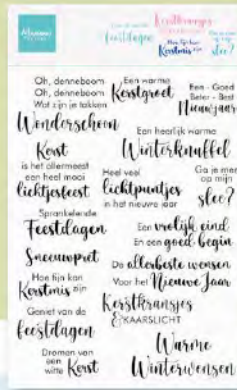 Marianne
Kerstkransjes
feestdagen
Hoe fijn kan
Kerstmis zijn
slee?
Oh, denneboom
Oh, denneboom
Wat zijn je takken
Wonderschoon
Een warme
Kerstgroet
Een - Goed
Beter - Best
Nieuwjaar
Een heerlijk warme
Winterknuffel
Kerst
is het allermeest
een heel mooi
lichtjesfeest
Heel veel
lichtpuntjes
in het nieuwe jaar
Ga je mee
op mijn
slee?
Sprankelende
Feestdagen
Een vrolijk eind
En een goed begin
Sneeuwpret
De allerbeste wensen
Voor het Nieuwe Jaar
Hoe fijn kan
Kerstmis zijn
Kerstkransjes
& KAARSLICHT
Geniet van de
feestdagen
Warme
Winterwensen
Dromen van
een
witte Kerst